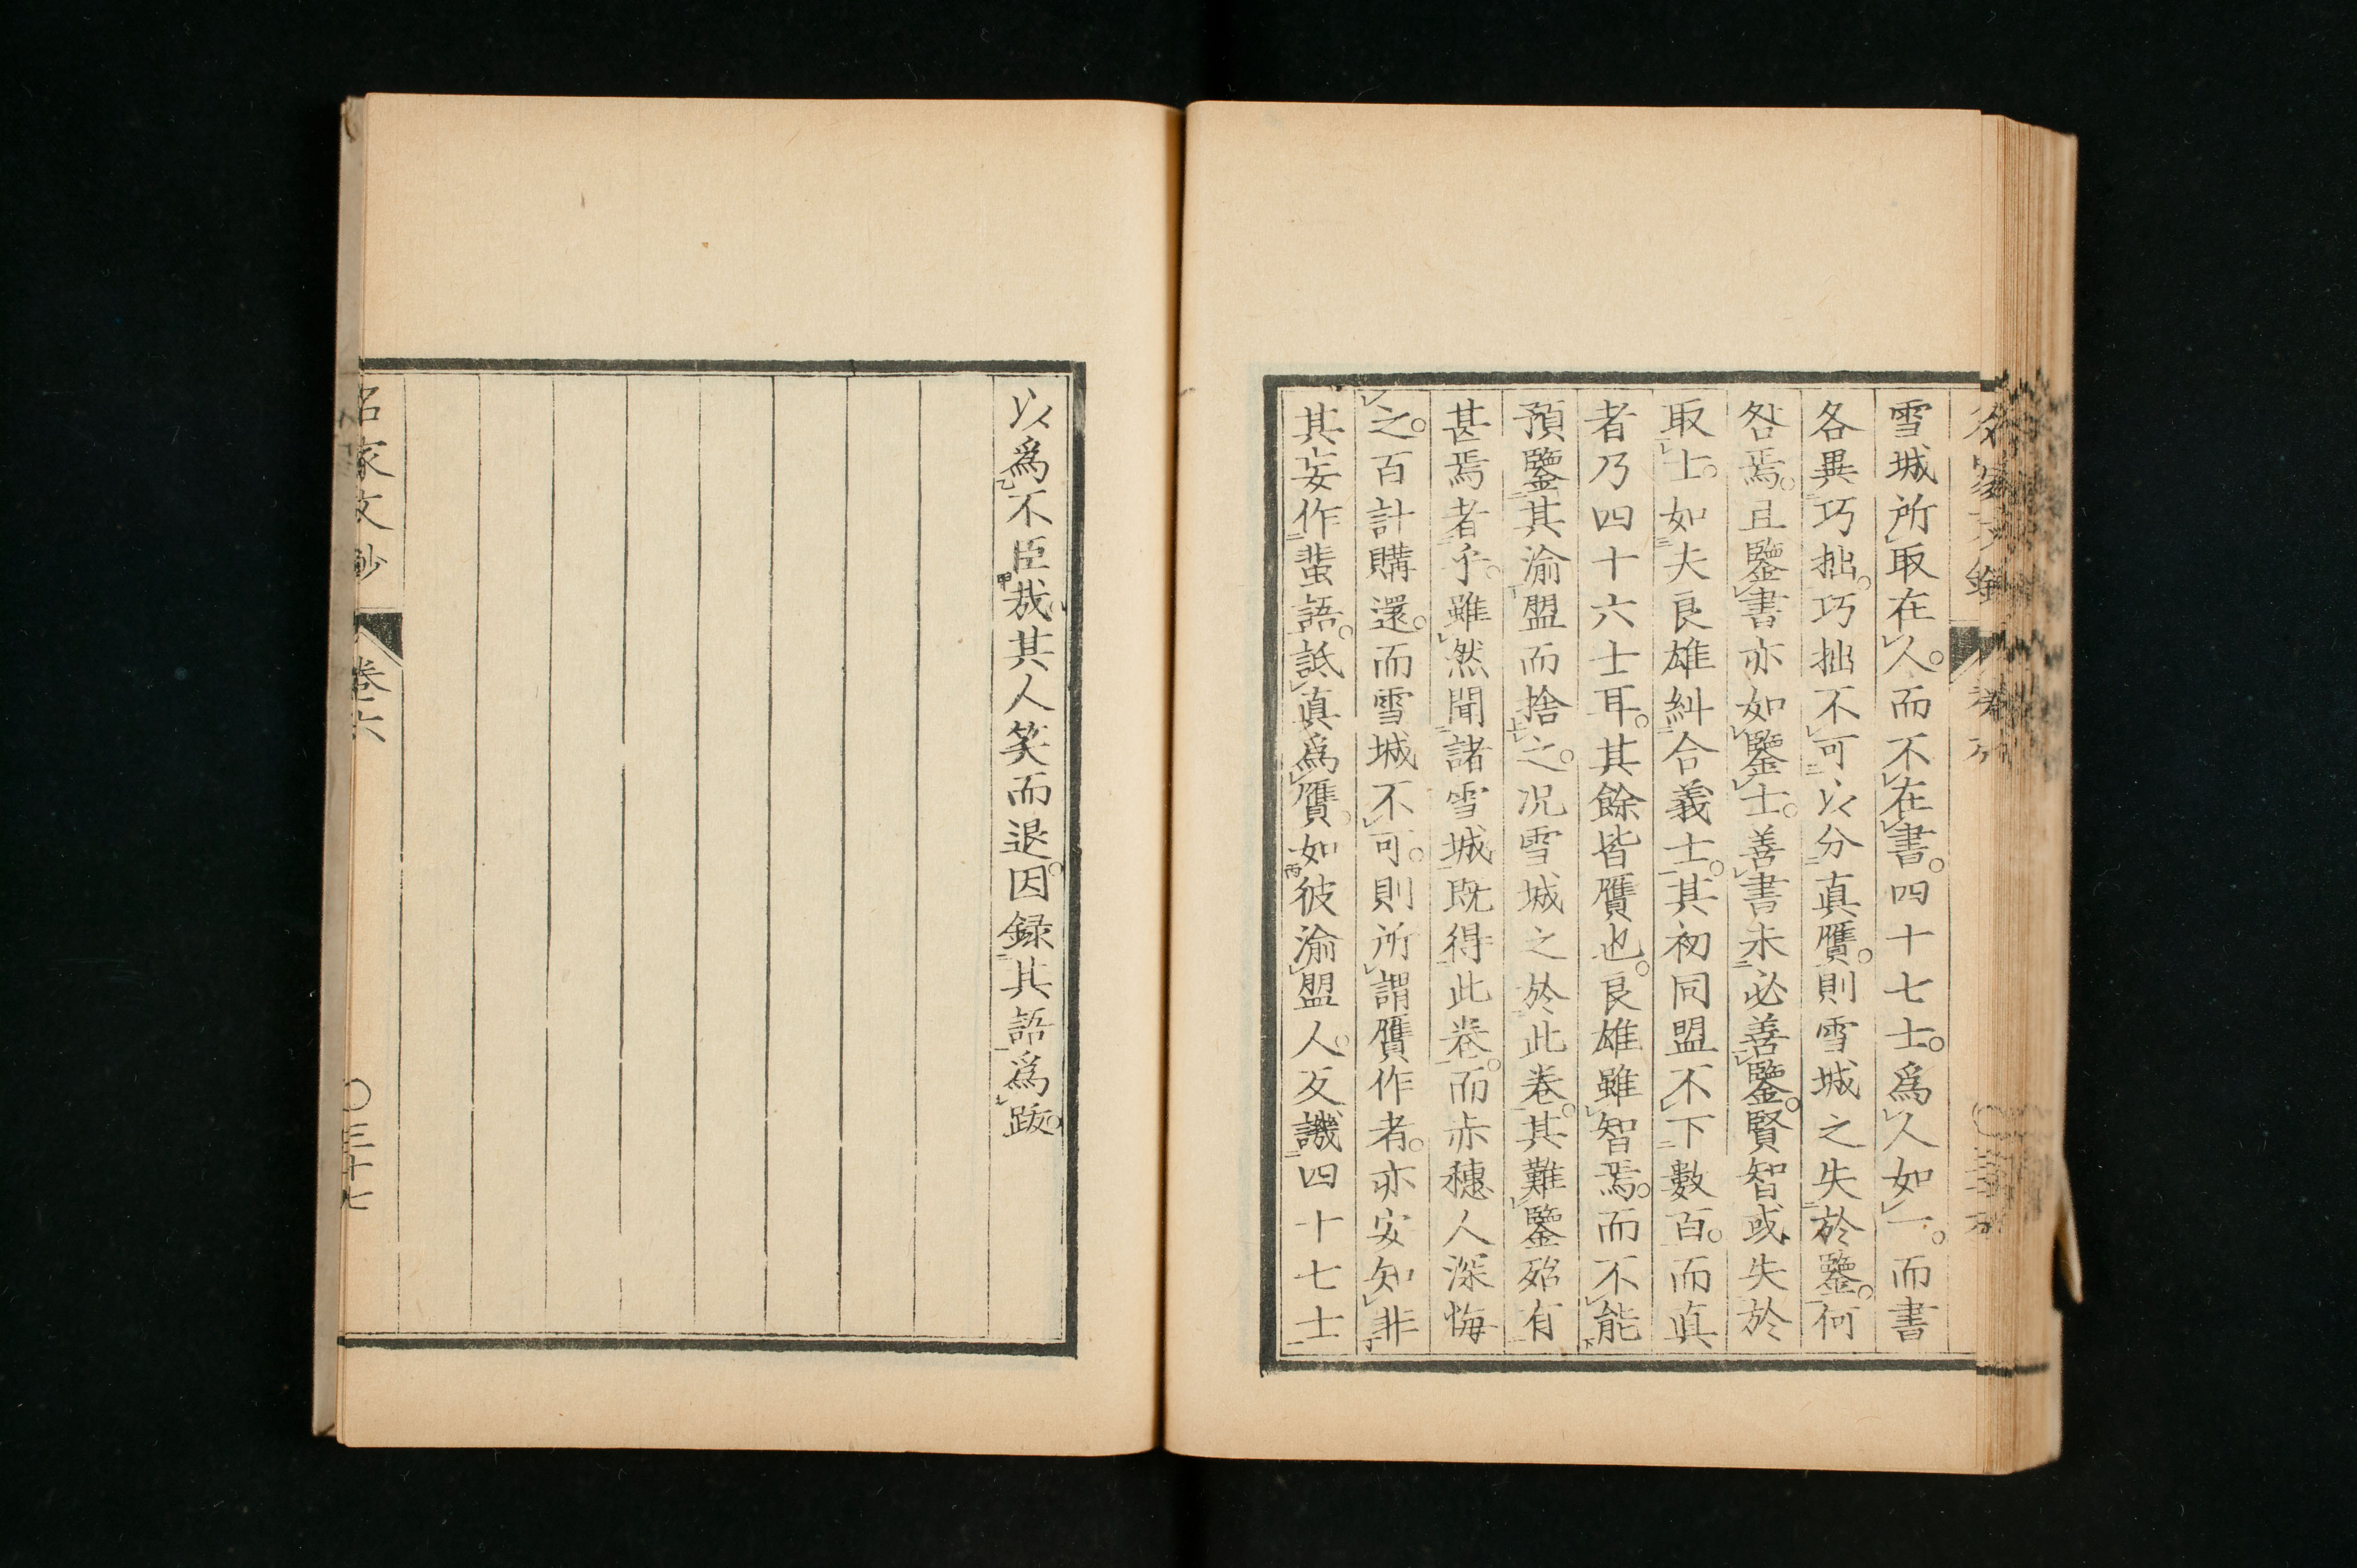 雪城所取在人。而不在書。四十七士。爲人如一。而書
各異巧拙。巧拙不可以分真贋。則雪城之失於鑒。何
咎焉。且鑒書亦如鑒士。善書未必善鑒。賢智或失於
取士。如夫良雄糾合義士。其初同盟不下數百。而真
者乃四十六士耳。其餘皆贋也。良雄雖智焉。而不能
預鑒其渝盟而捨之。况雪城之於此卷。其難鑒殆有
甚焉者乎。雖然聞諸雪城既得此卷。而赤穗人深悔
之。百計購還。而雪城不可。則所謂贋作者。亦安知非
其妄作蜚語。詆真爲贋。如彼渝盟人。反譏四十七士
以爲不臣哉。其人笑而退。因録其語爲跋。
名家文鈔
卷六
〇三十七